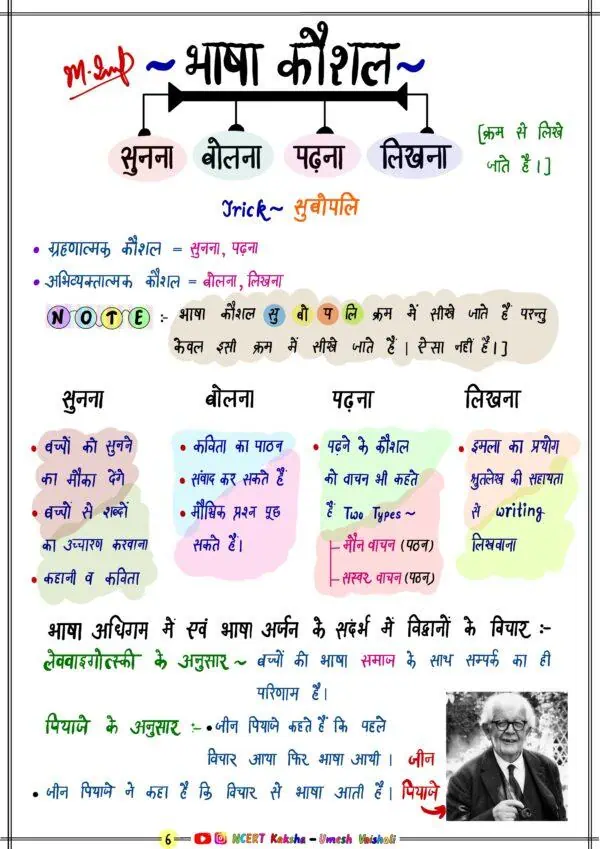 M. Imp ~ भाषा कौशल ~
सुनना बोलना पढ़ना लिखना
[क्रम से लिखे
जाते है।]
Trick~ सुबोपलि
• ग्रहणात्मक कौशल = सुनना, पढ़ना
• अभिव्यक्तात्मक कौशल = बोलना, लिखना
NOTE :- भाषा कौशल सु बो प लि क्रम में सीखे जाते हैं परन्तु
केवल इसी क्रम में सीखे जाते है। ऐसा नहीं है।]
सुनना
• बच्चों को सुनने
का मौका देंगे
• बच्चों से शब्दों
का उच्चारण करवाना
• कहानी व कविता
बोलना
• कविता का पाठन
• संवाद कर सकते हैं
• मौखिक प्रश्न पूछ
सकते हैं।
पढ़ना
• पढ़ने के कौशल
को वाचन भी कहते
हैं Two Types ~
मौन वाचन (पठन)
सस्वर वाचन (पठन)
लिखना
• इमला का प्रयोग
श्रुतलेख की सहायता
से writing
लिखवाना
भाषा अधिगम में एवं भाषा अर्जन के संदर्भ में विद्वानों के विचार :-
लेववाइगोत्स्की के अनुसार ~ बच्चों की भाषा समाज के साथ सम्पर्क का ही
परिणाम है।
पियाजे के अनुसार :- • जीन पियाजे कहते हैं कि पहले
विचार आया फिर भाषा आयी।
• जीन पियाजे ने कहा है कि विचार से भाषा आती है।
जीन
पियाजे
6 NCERT Kaksha - Umesh Vaishali